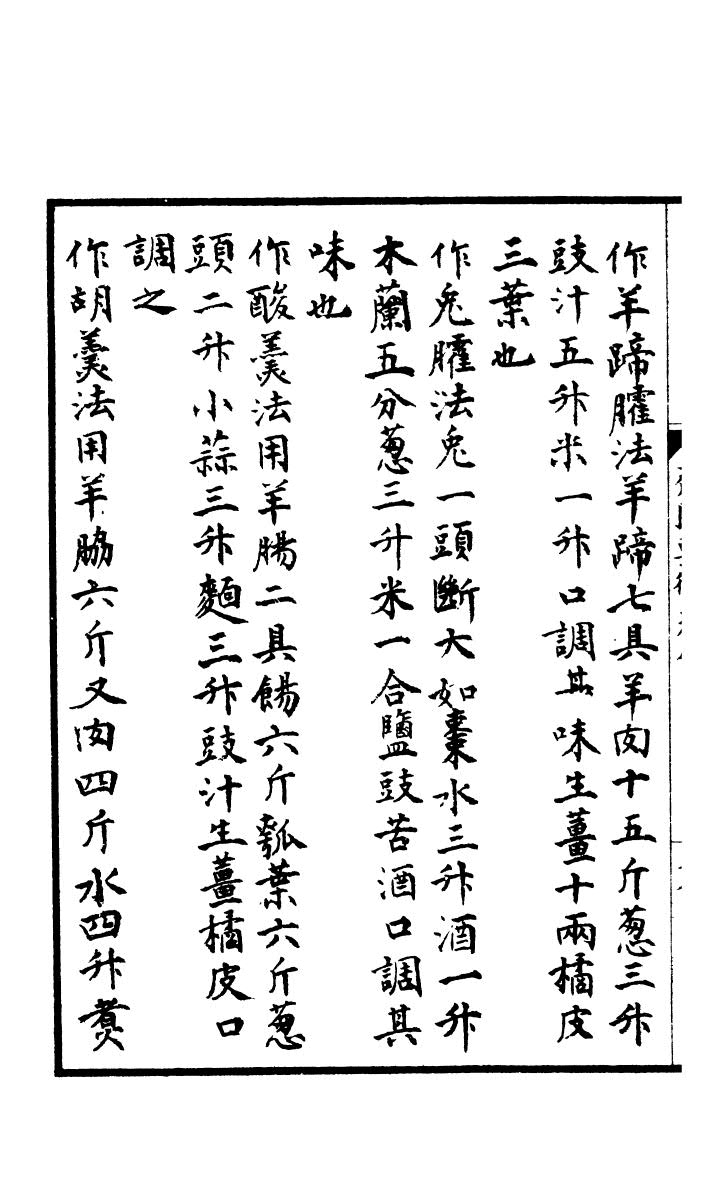 作羊蹄臛法羊蹄七具羊肉十五斤葱三升
豉汁五升米一升口調其味生薑十兩橘皮
三葉也
作兎臛法兎一頭斷大如棗水三升酒一升
木蘭五分葱三升米一合鹽豉苦酒口調其
味也
作酸羹法用羊腸二具餳六斤瓠葉六斤葱
頭二升小蒜三升麵三升豉汁生薑橘皮口
調之
作胡羹法用羊脇六斤又肉四斤水四升煑